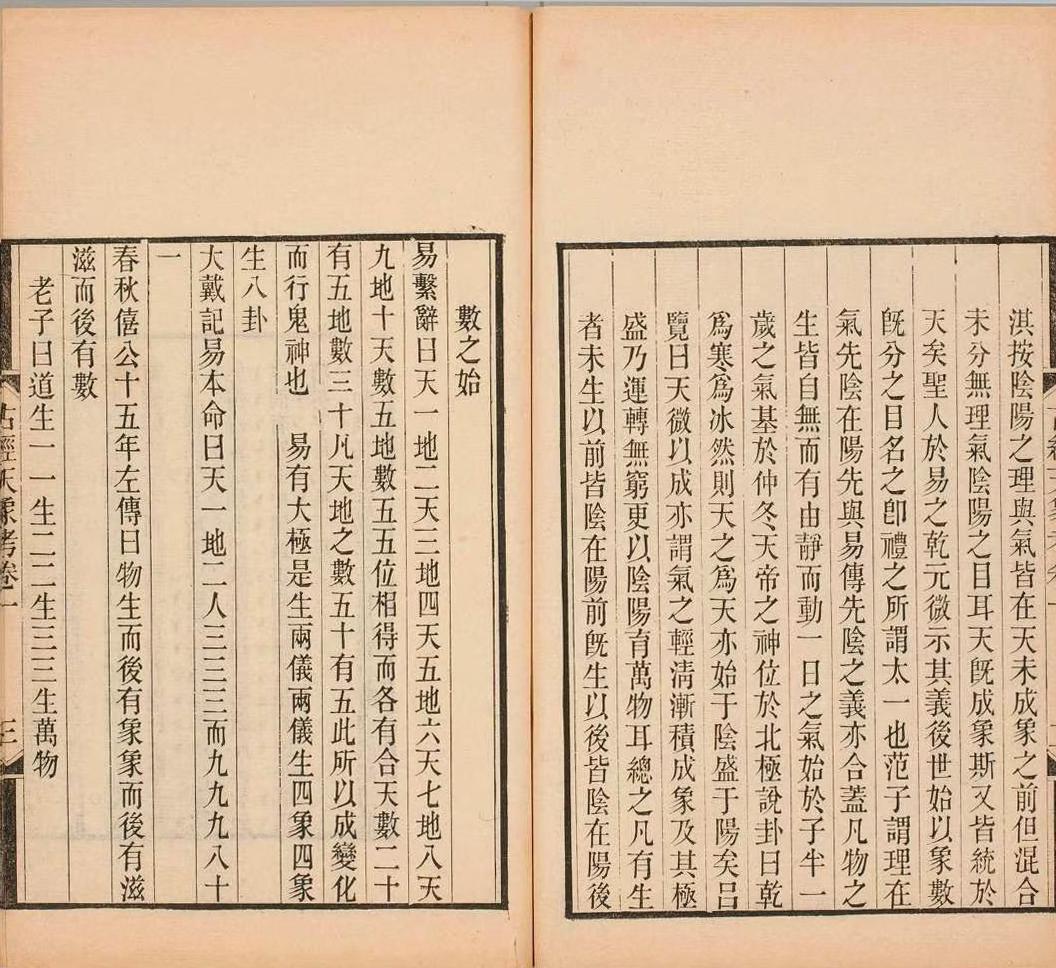 淇按陰陽之理與氣皆在天未成象之前但混合
未分無理氣陰陽之目耳天旣成象斯又皆統於
天矣聖人於易之乾元微示其義後世始以象數
旣分之目名之卽禮之所謂太一也范子謂理在
氣先陰在陽先與易傳先陰之義亦合蓋凡物之
生皆自無而有由靜而動一日之氣始於子半一
歲之氣基於仲冬天帝之神位於北極說卦曰乾
爲寒爲冰然則天之爲天亦始于陰盛于陽矣呂
覽曰天微以成亦謂氣之輕淸漸積成象及其極
盛乃運轉無窮更以陰陽育萬物耳總之凡有生
者未生以前皆陰在陽前旣生以後皆陰在陽後
數之始
易繫辭曰天一地二天三地四天五地六天七地八天
九地十天數五地數五五位相得而各有合天數二十
有五地數三十凡天地之數五十有五此所以成變化
而行鬼神也 易有大極是生兩儀兩儀生四象四象
生八卦
大戴記易本命曰天一地二人三三三而九九九八十
一
春秋僖公十五年左傳曰物生而後有象象而後有滋
滋而後有數
老子曰道生一一生二二生三三生萬物
古經天象考卷二
三